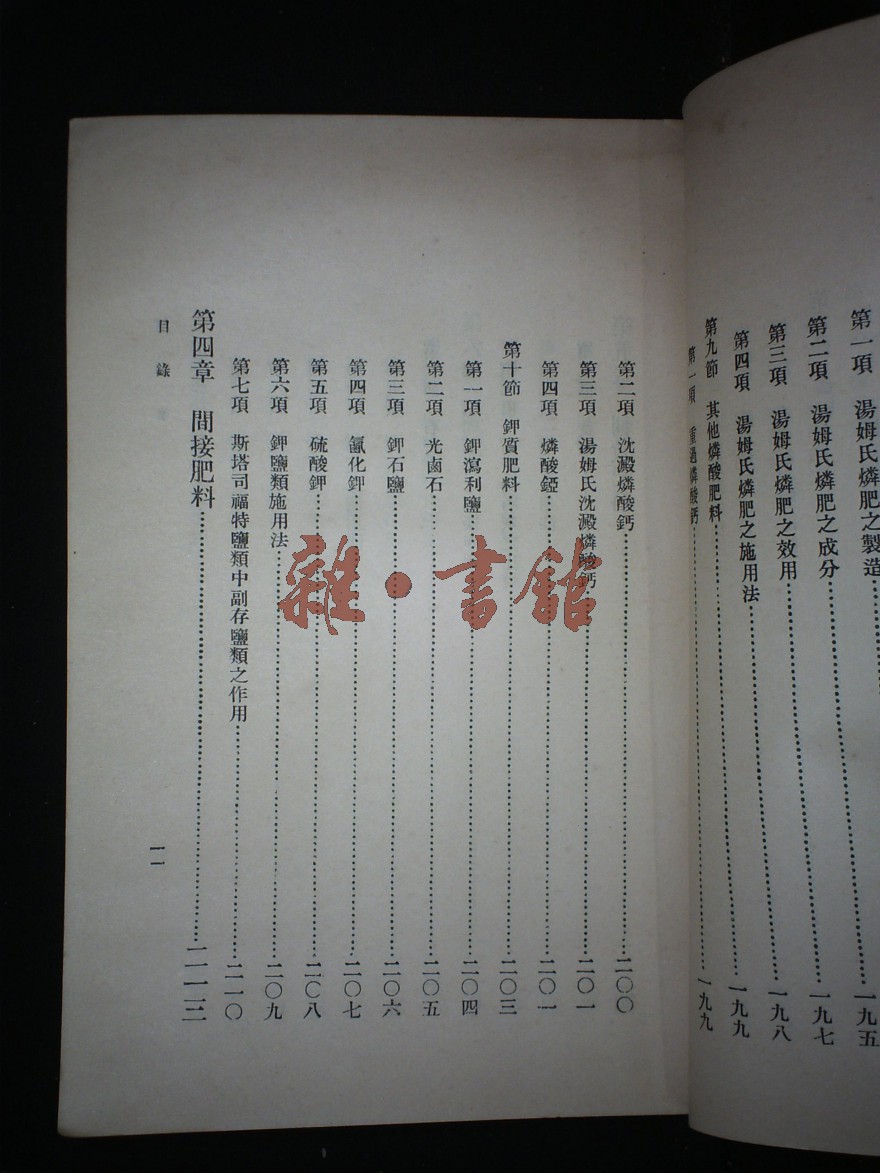 第一項 湯姆氏燐肥之製造……一九五
第二項 湯姆氏燐肥之成分……一九七
第三項 湯姆氏燐肥之效用……一九八
第四項 湯姆氏燐肥之施用法……一九九
第九節 其他燐酸肥料
第一項 重過燐酸鈣……一九九
第二項 沈澱燐酸鈣……二〇〇
第三項 湯姆氏沈澱燐酸鈣……二〇一
第四項 燐酸錏……二〇一
第十節 鉀質肥料……二〇三
第一項 鉀瀉利鹽……二〇四
第二項 光鹵石……二〇五
第三項 鉀石鹽……二〇六
第四項 氯化鉀……二〇七
第五項 硫酸鉀……二〇八
第六項 鉀鹽類施用法……二〇九
第七項 斯塔司福特鹽類中副存鹽類之作用……二一〇
第四章 間接肥料……二一三
目錄
一一
雜·書館